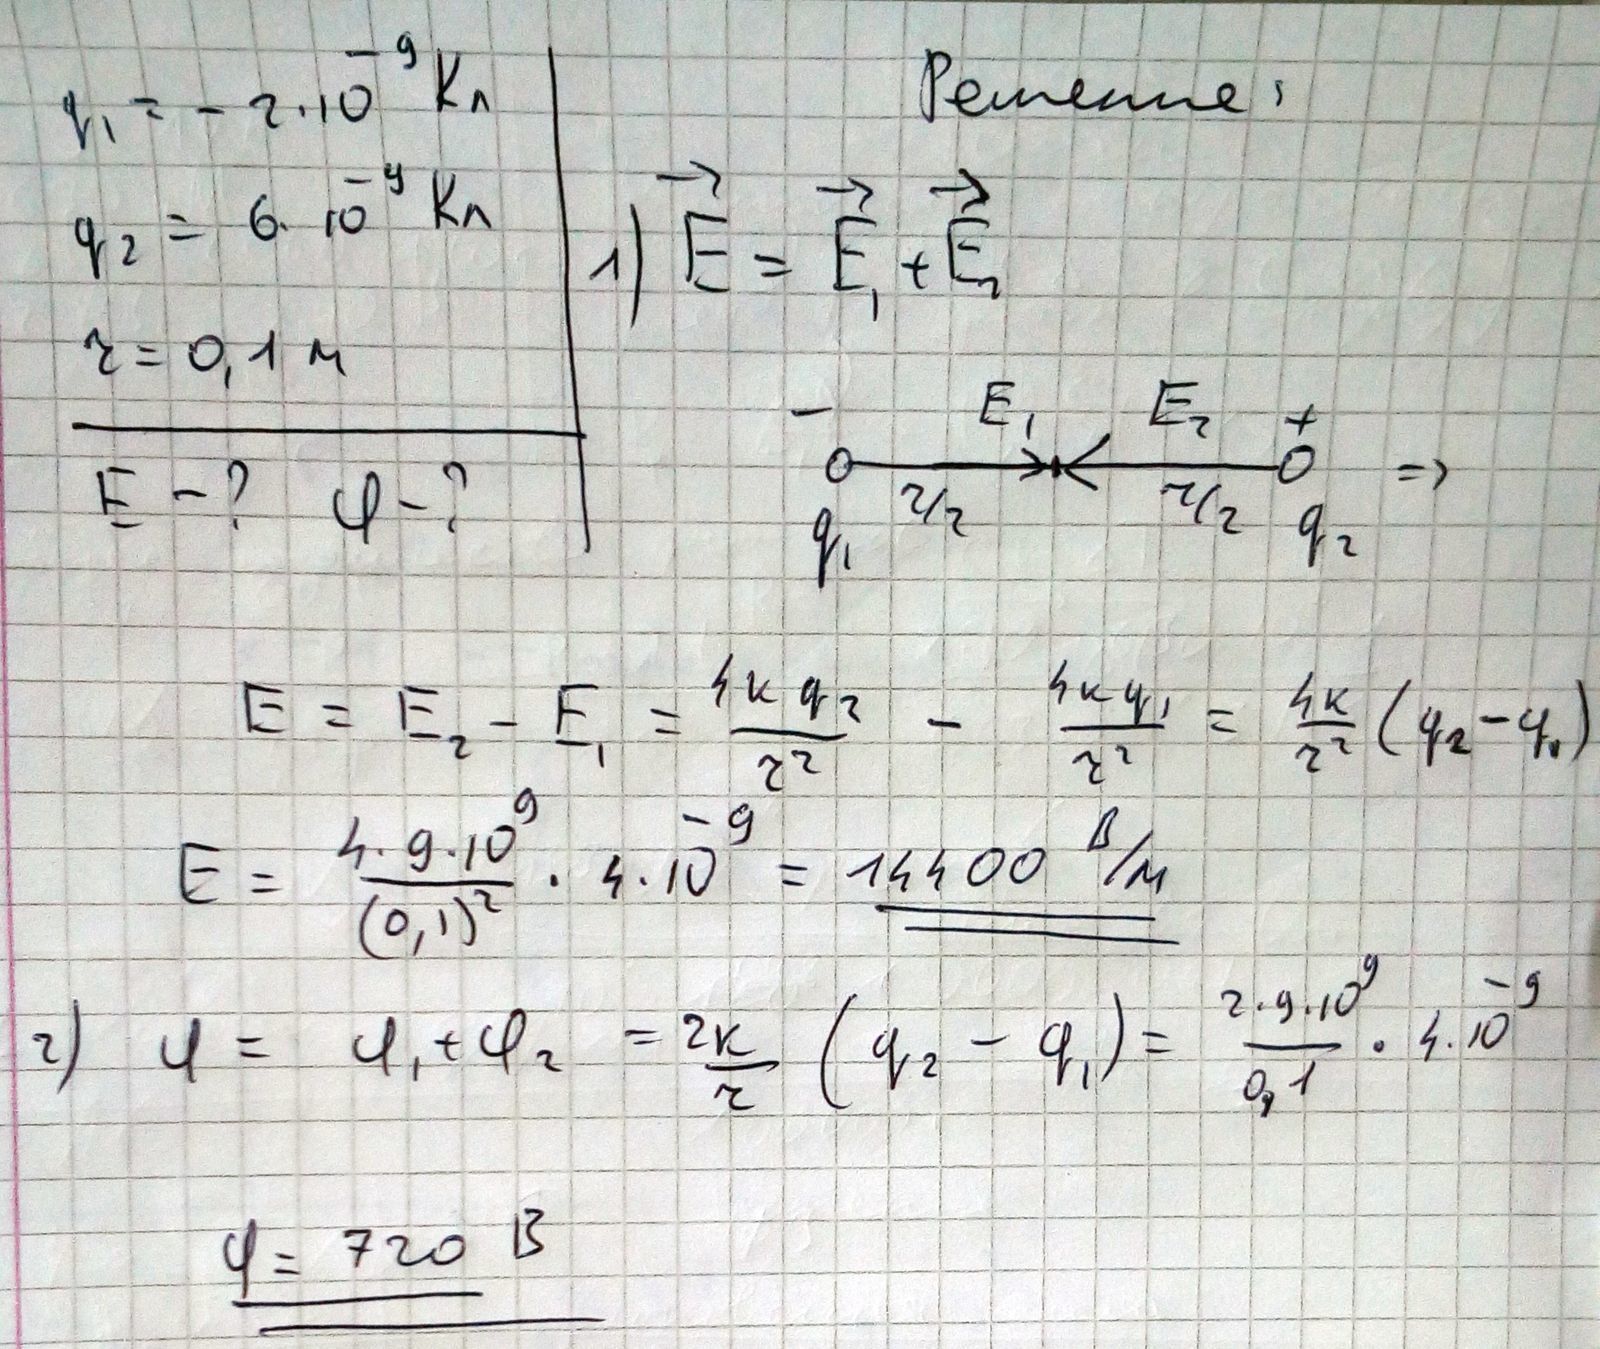 q₁ = - 2·10⁻⁹ Кл
q₂ = 6·10⁻⁹ Кл
r = 0,1 м
E - ? φ - ?
Решение:
1) E⃗ = E⃗₁ + E⃗₂
- E₁ E₂ +
r/2 r/2 =>
q₁ q₂
E = E₂ - E₁ = 4kq₂/r² - 4kq₁/r² = 4k/r² (q₂ - q₁)
E = 4·9·10⁹/(0,1)² · 4·10⁻⁹ = 14400 В/м
2) φ = φ₁ + φ₂ = 2k/r (q₂ - q₁) = 2·9·10⁹/0,1 · 4·10⁻⁹
φ = 720 В